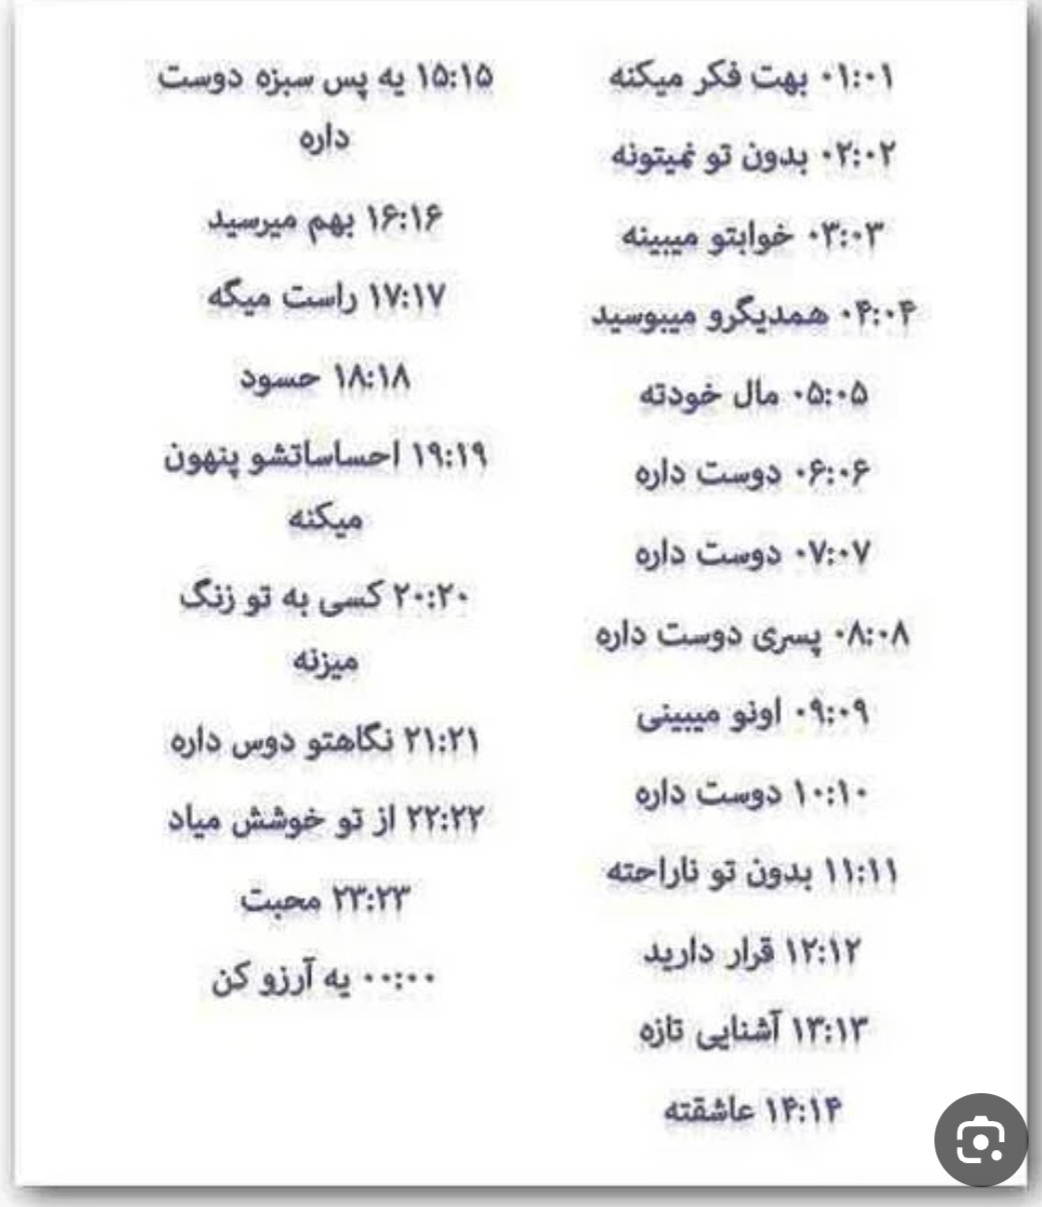 ۰۱:۰۱ بهت فکر میکنه
۰۲:۰۲ بدون تو نمیتونه
۰۳:۰۳ خوابتو میبینه
۰۴:۰۴ همدیگرو میبوسید
۰۵:۰۵ مال خودته
۰۶:۰۶ دوست داره
۰۷:۰۷ دوست داره
۰۸:۰۸ پسری دوست داره
۰۹:۰۹ اونو میبینی
۱۰:۱۰ دوست داره
۱۱:۱۱ بدون تو ناراحته
۱۲:۱۲ قرار دارید
۱۳:۱۳ آشنایی تازه
۱۴:۱۴ عاشقته
۱۵:۱۵ یه پس سبزه دوست
داره
۱۶:۱۶ بهم میرسید
۱۷:۱۷ راست میگه
۱۸:۱۸ حسود
۱۹:۱۹ احساساتشو پنهون
میکنه
۲۰:۲۰ کسی به تو زنگ
میزنه
۲۱:۲۱ نگاهتو دوس داره
۲۲:۲۲ از تو خوشش میاد
۲۳:۲۳ محبت
۰۰:۰۰ یه آرزو کن